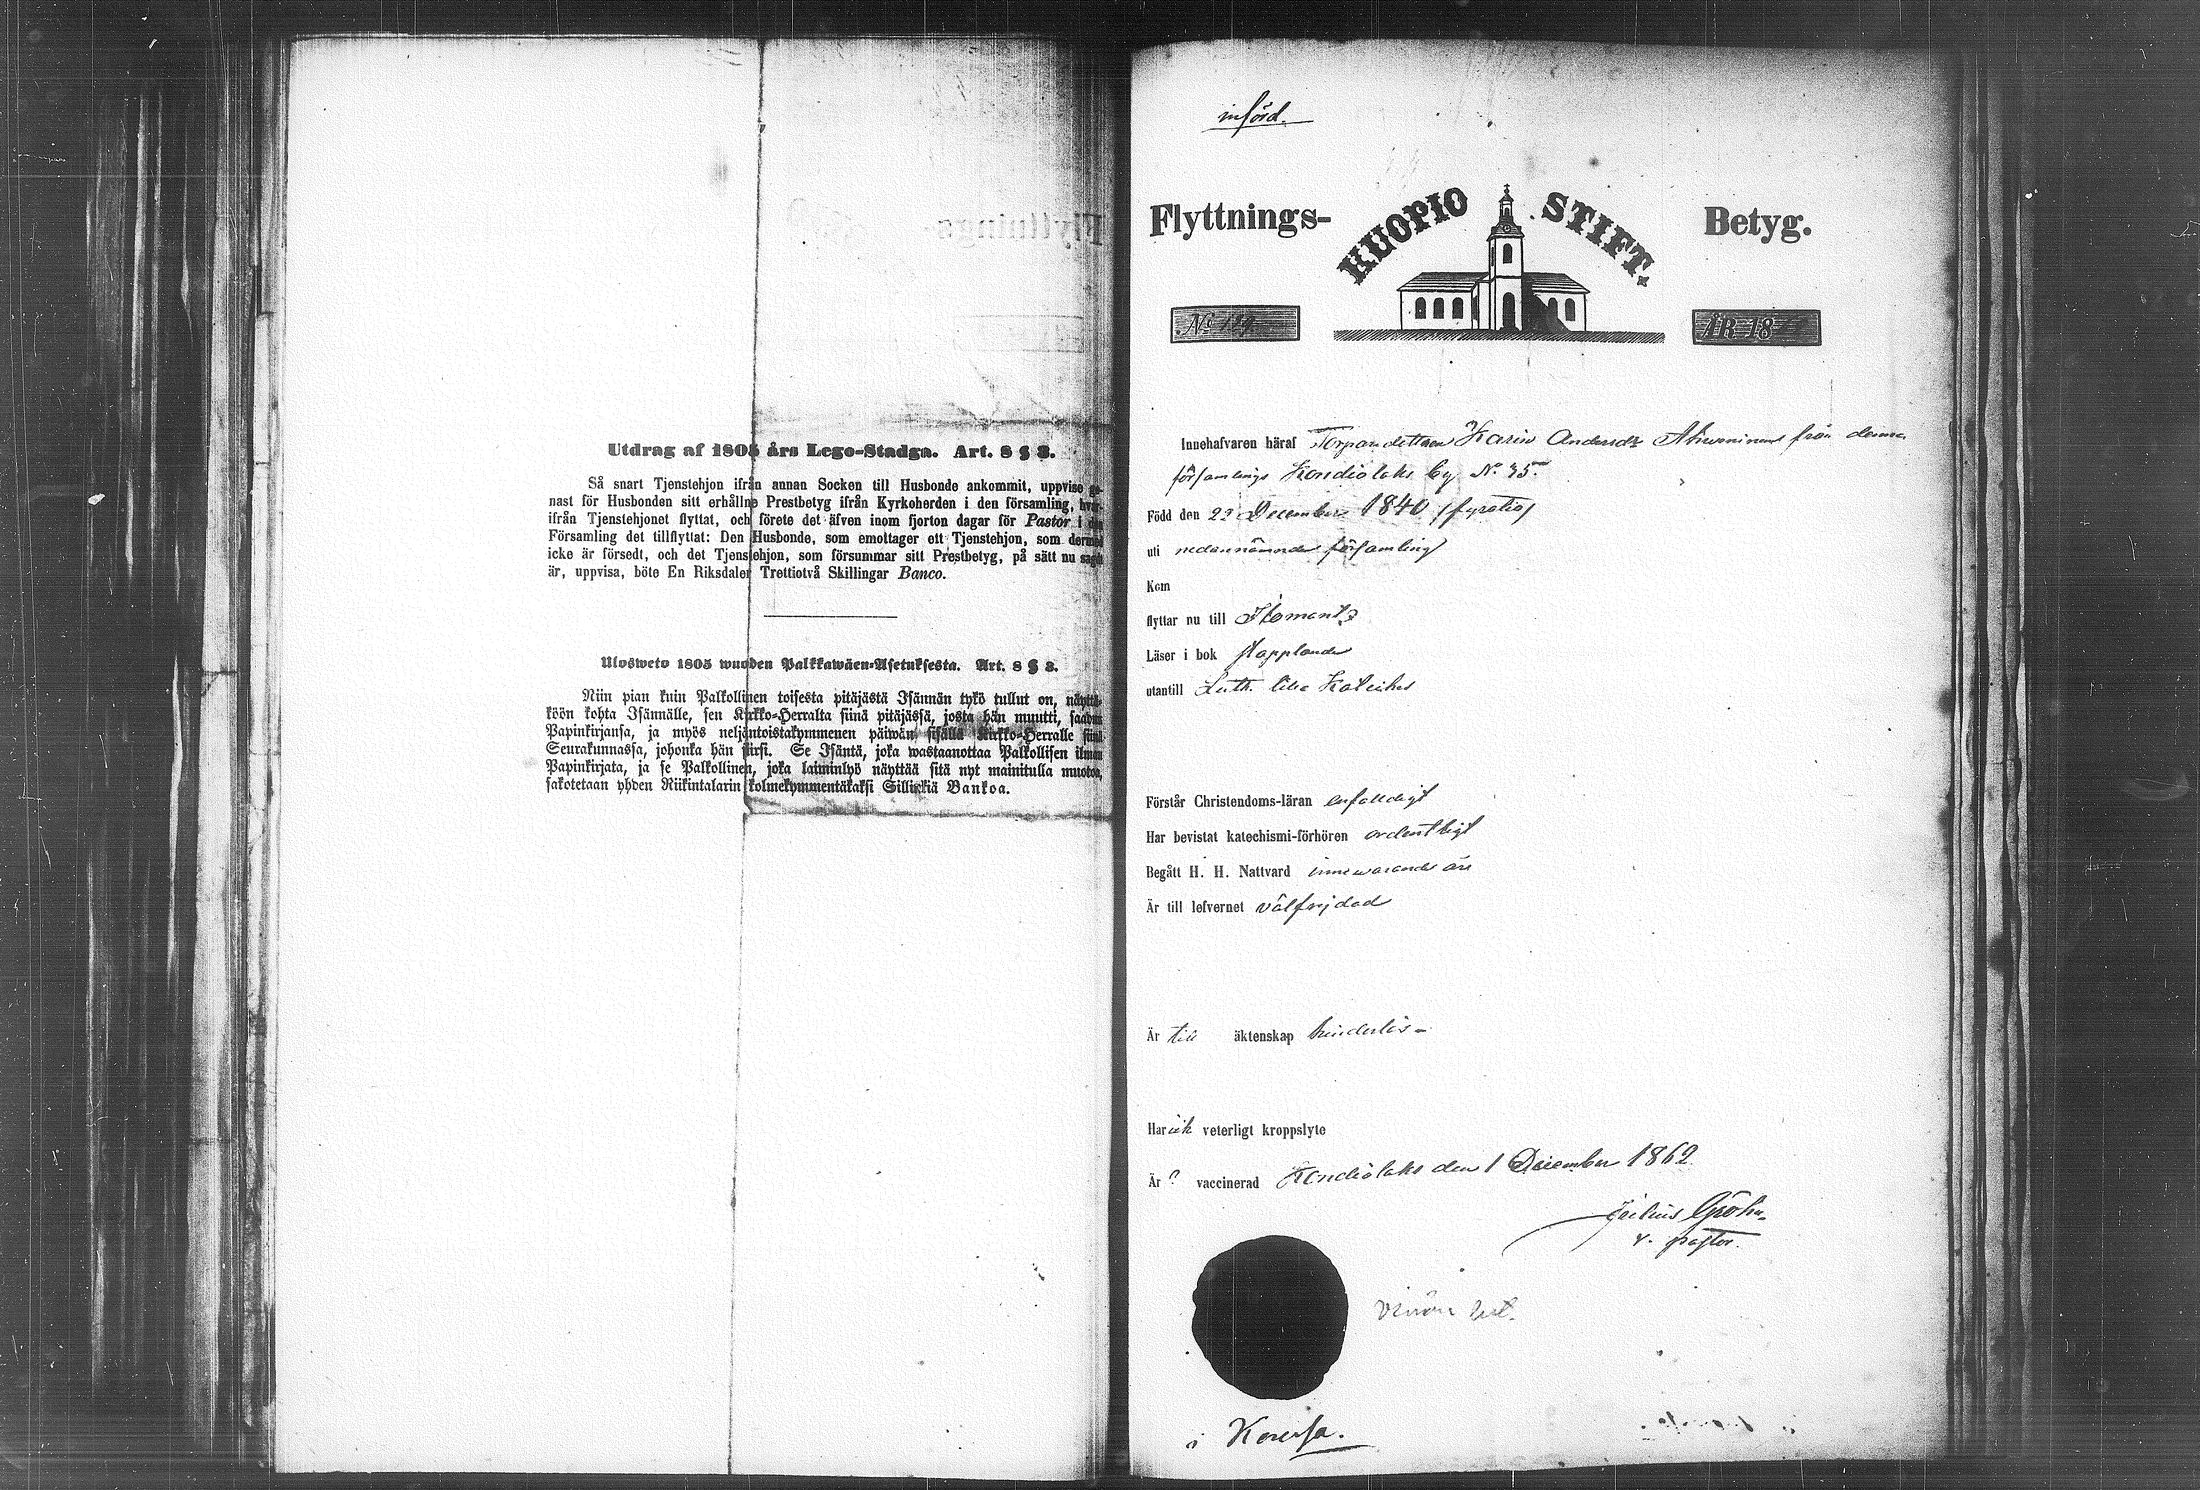 Utdrag af 1805 års Lego-Stadga. Art. 8 § 3.
Så snart Tjenstehjon ifrån annan Socken till Husbonde ankommit, uppvise ge-
nast för Husbonden sitt erhållne Prestbetyg ifrån Kyrkoherden i den församling, hvar-
ifrån Tjenstehjonet flyttat, och förete det äfven inom fjorton dagar för Pastor i den
Församling det tillflyttat: Den Husbonde, som emottager ett Tjenstehjon, som dermed
icke är försedt, och det Tjenstehjon, som försummar sitt Prestbetyg, på sätt nu sagdt
är, uppvisa, böte En Riksdaler Trettiotvå Skillingar Banco.
Ulosweto 1805 wuoden Palkkawäen-Asetuksesta. Art. 8 § 3.
Niin pian kuin Palkollinen toisesta pitäjästä Isännän tykö tullut on, näyttä-
köön kohta Isännälle, sen Kirkko-Herralta siinä pitäjässä, josta hän muutti, saadun
Papinkirjansa, ja myös neljäntoistakymmenen päiwän sisällä Kirkko-Herralle siinä
Seurakunnassa, johonka hän siirsi. Se Isäntä, joka wastaanottaa Palkollisen ilman
Papinkirjata, ja se Palkollinen, joka laiminlyö näyttää sitä nyt mainitulla muotoa,
sakotetaan yhden Riikintalarin kolmekymmentäkaksi Sillinkiä Bankoa.
införd.
Flyttnings- KUOPIO STIFT. Betyg.
No 129. ÅR 18
Innehafvaren häraf Torparedottren Karin Andersdr Ahweninen från denna
församlings Kondiolaks by No 35.
Född den 22 December 1840 /fyratio/
uti nedannämnda församling
Kom
flyttar nu till Ilomants
Läser i bok
utantill Luth. lilla Kateches
Förstår Christendoms-läran enfaldigt
Har bevistat katechismi-förhören ordentligt
Begått H. H. Nattvard innewarande år
Är till lefvernet välfrejdad
Är till äktenskap hinderlös
Har ick veterligt kroppslyte
Är ? vaccinerad Kondiolaks den 1 December 1862
Julius Gröhn
v. pastor.
i